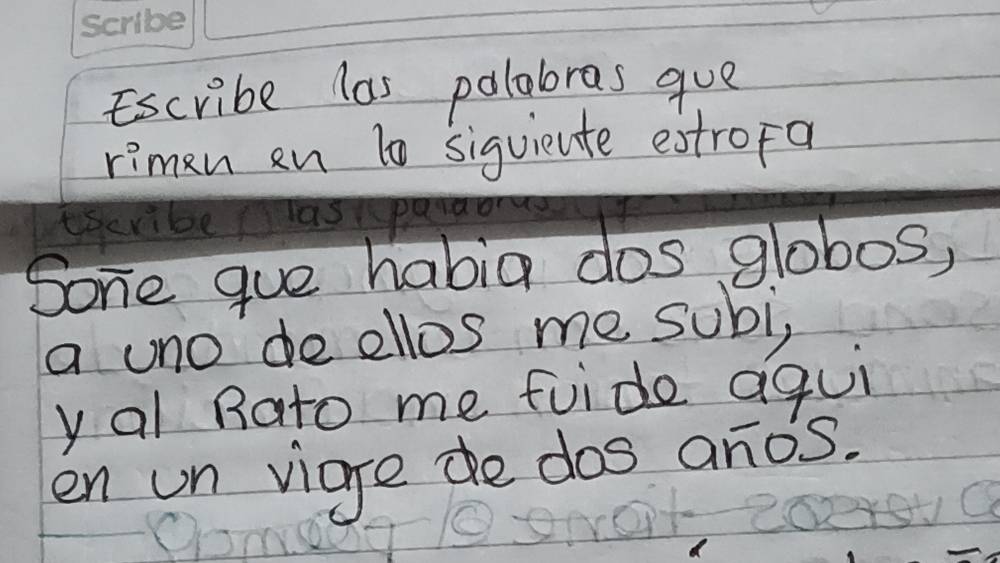 Scribe
Escribe las palabras que
rimen en la siguiente estrofa
Escribe las palabras
Soñe que habia dos globos,
a uno de ellos me subi,
y al Rato me fui de aqui
en un viaje de dos años.